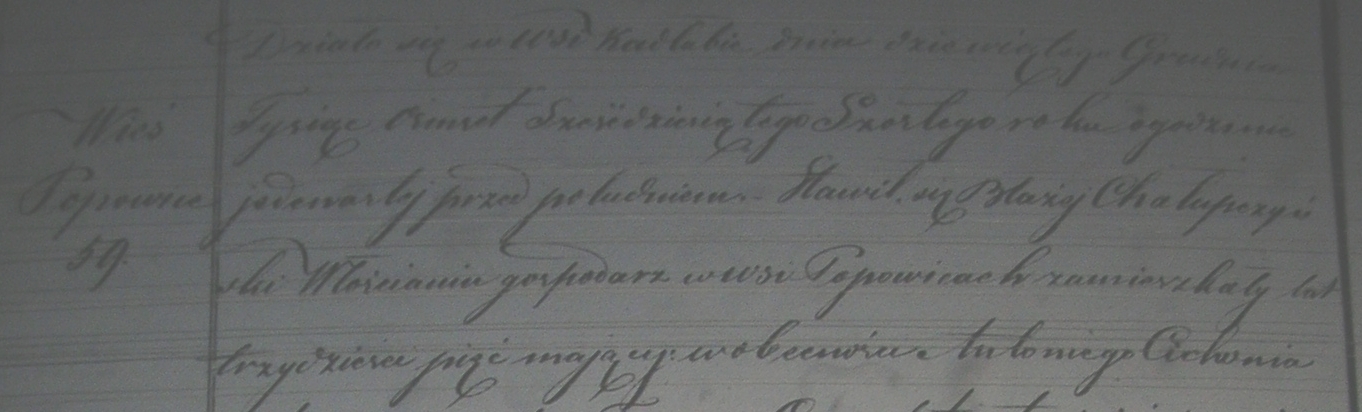 Działo się w wsi Kadłubie dnia dziewiątego Grudnia
Wieś
Tysiąc Ośmset Sześćdziesiątego Szóstego roku o godzinie
Popowice
jedenastej przed południem. Stawił się Błażej Chałupczyń
59.
ski Włościanin gospodarz w wsi Popowicach zamieszkały lat
trzydzieści pięć mający w obecności Antoniego Cichonia